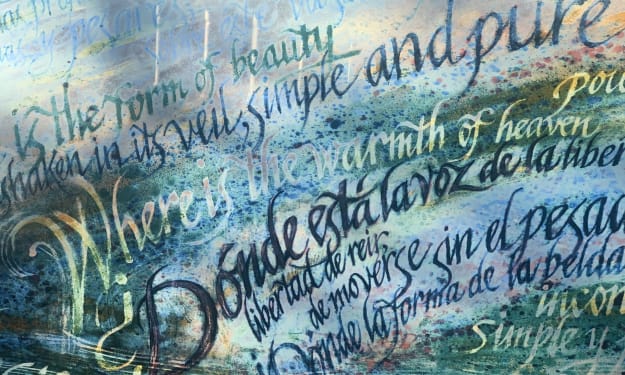 is the form of beauty
shaken in its veil, simple and pure
Where is the warmth of heaven
¿Dónde está la voz de la liber
libertad de reir,
de moverse sin el pesad
Donde la forma de la belda
incon
simple y